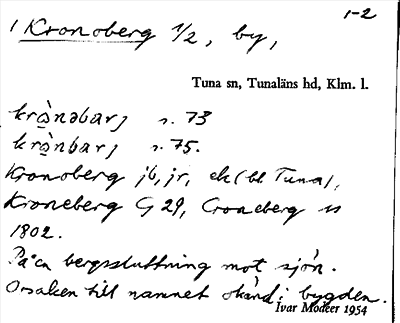 1-2
1 Kronoberg 1/2, by,
Tuna sn, Tunaläns hd, Klm. l.
krònəbarj s. 73
krònbarj s. 75.
Kronoberg jb, jr, ek (bl. Tuna),
Kroneberg G 29, Croneberg
1802.
På en bergssluttning mot sjön.
Orsaken till namnet okänd i bygden.
Ivar Modéer 1954